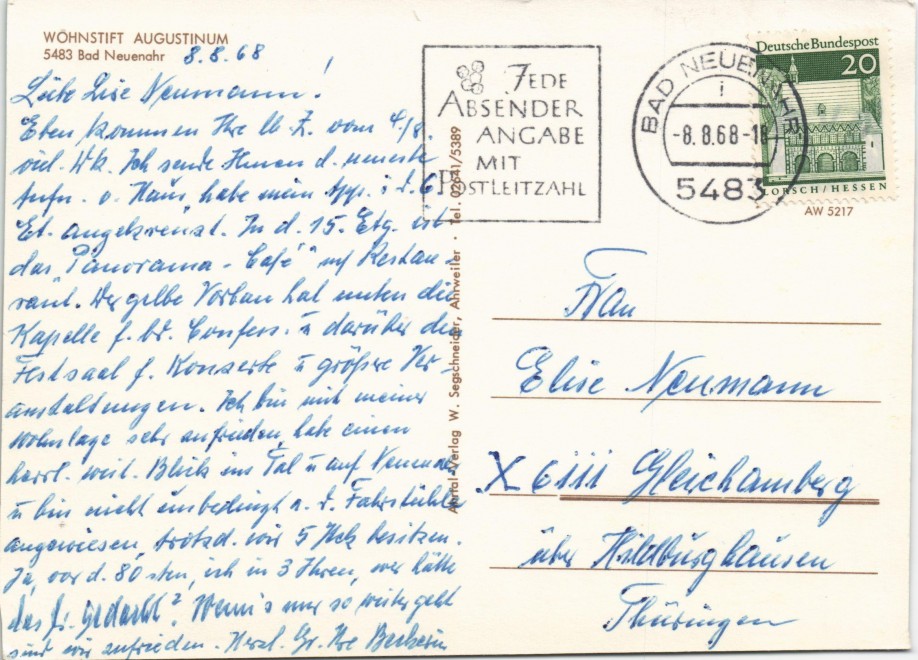 WOHNSTIFT AUGUSTINUM
5483 Bad Neuenahr
8.8.68
Liebe Lise Neumann!
Eben kommen Ihre lb. Z. vom 4./8.
viel. Dk. Ich sende Ihnen d. neueste
Aufn. v. Haus, habe mein App. i. d. 6.
Et. angekreuzt. In d. 15. Etg. ist
das "Panorama-Café" u/ Restau-
rant. Der gelbe Vorbau hat unten die
Kapelle f. bd. Confess. u darüber den
Festsaal f. Konzerte u größere Ver-
anstaltungen. Ich bin mit meiner
Wohnlage sehr zufrieden, habe einen
herrl. weit. Blick ins Tal u auf Neuenahr
u bin nicht unbedingt a. d. Fahrstühle
angewiesen, trotzd. wir 5 Stck besitzen.
Ja, vor d. 80sten, ich in 3 Jhren, wer hätte
das fr. gedacht? Wenn's nur so weiter geht
sind wir zufrieden. Herzl. Gr. Ihre
Ahrtal-Verlag W. Segschneider, Ahrweiler · Tel. 02641/5389
JEDE
ABSENDER
ANGABE
MIT
POSTLEITZAHL
BAD NEUENAHR
i
-8.8.68-18
5483
Deutsche Bundespost
20
LORSCH/HESSEN
AW 5217
Frau
Elise Neumann
X 6111 Gleichamberg
über Hildburghausen
Thüringen